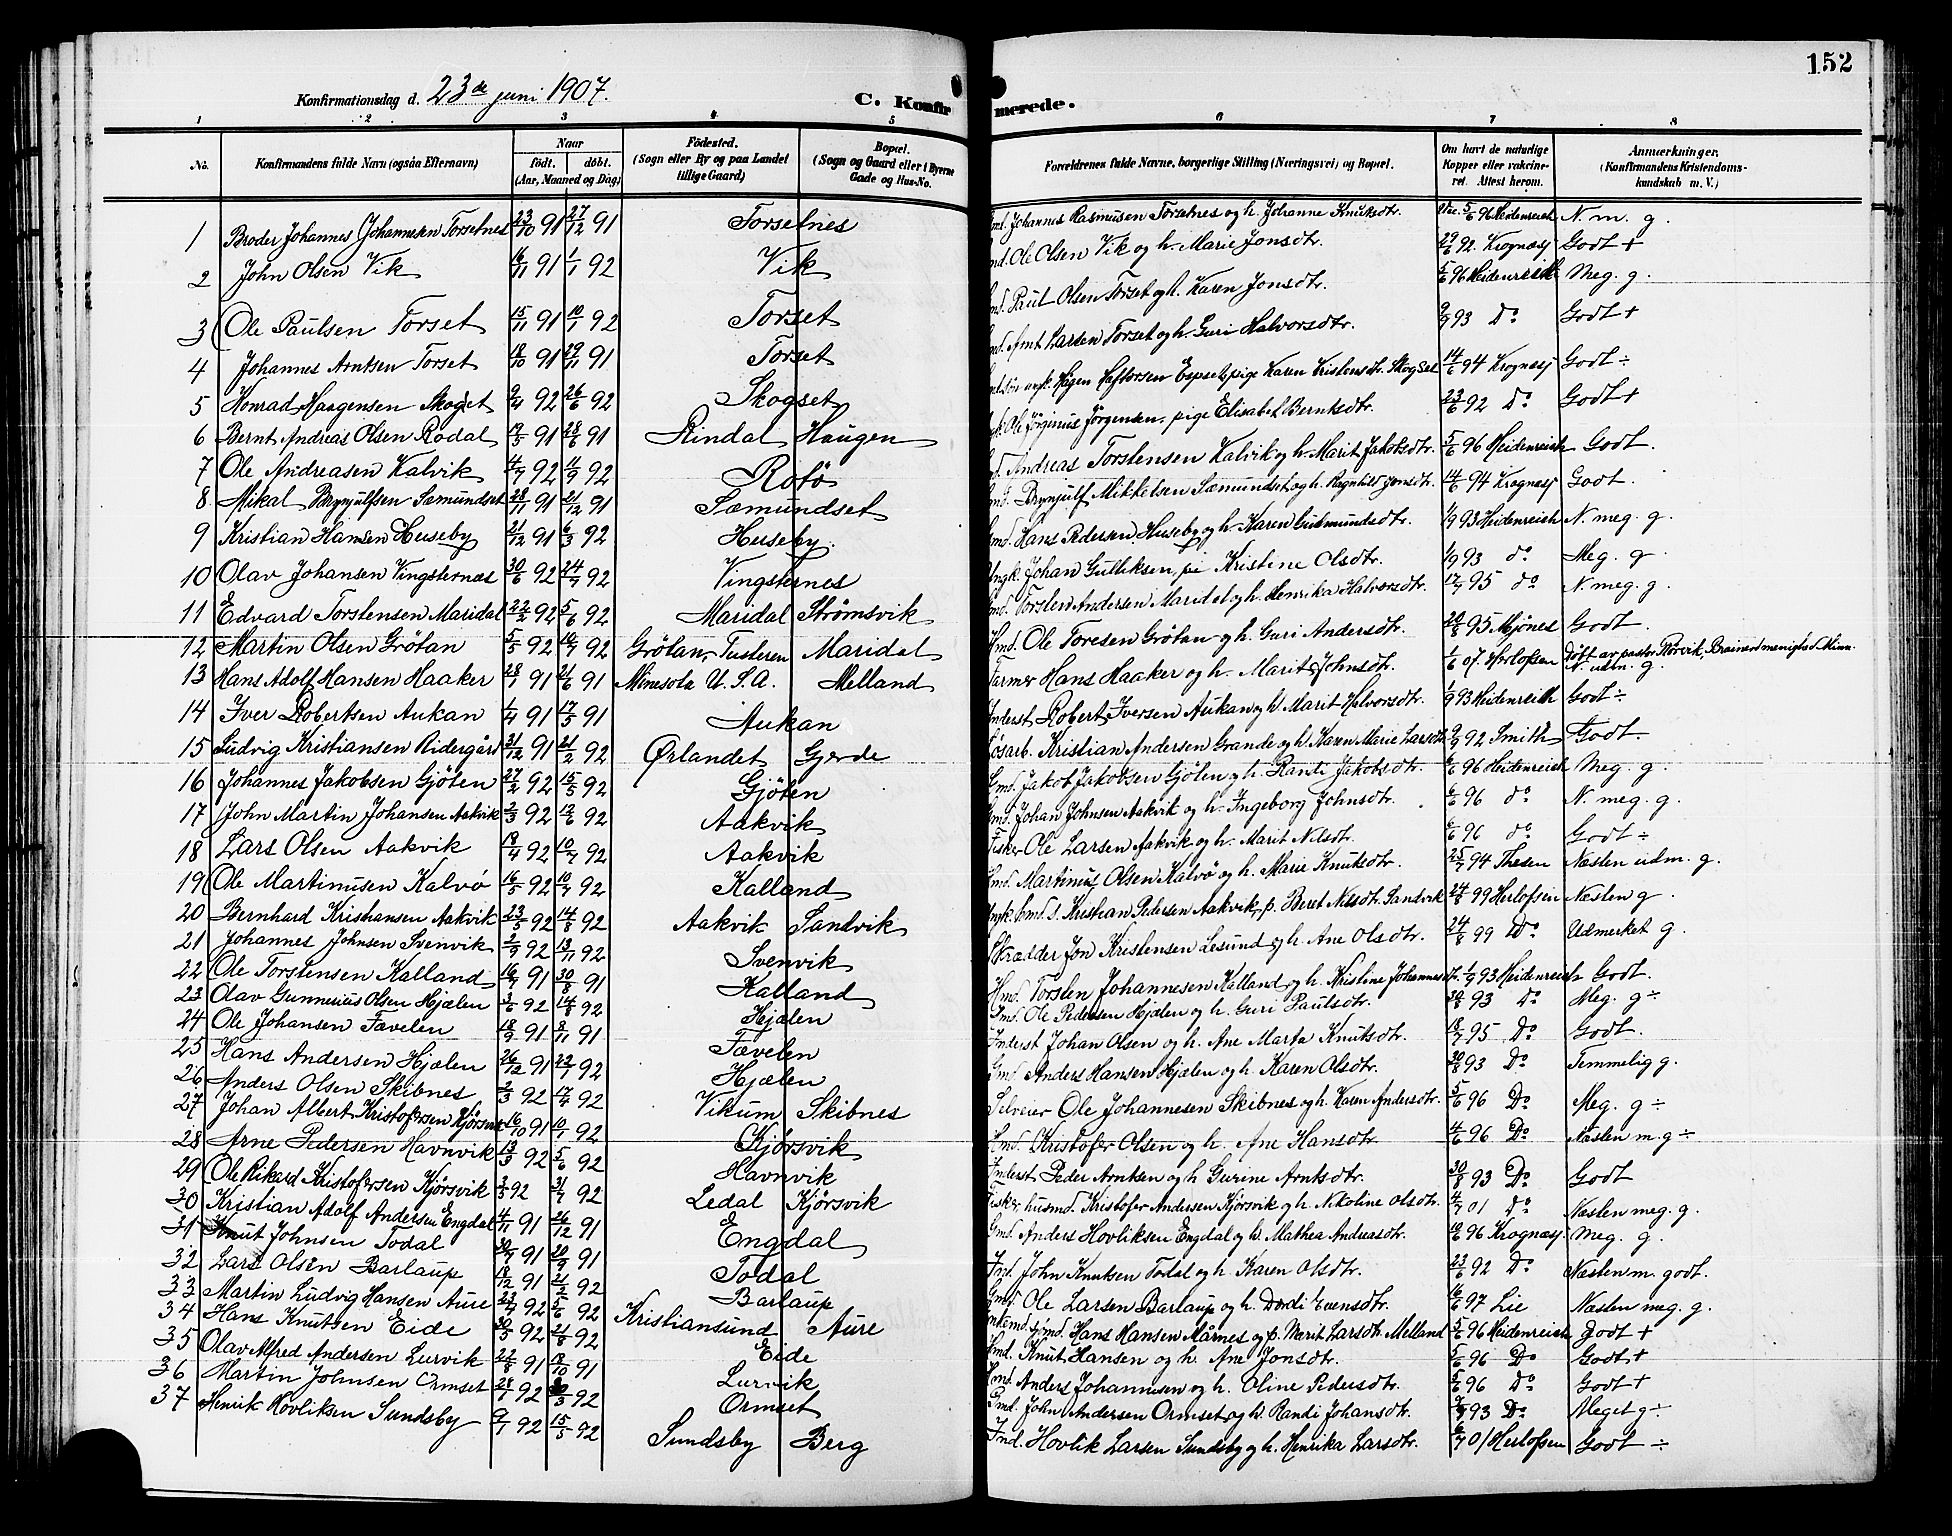 152
Konfirmationsdag d. 23de juni 1907.
C. Konfirmerede.
1 2 3 4 5 6 7 8
No. Konfirmandens fulde Navn (ogsaa Efternavn) Naar født. døbt. (Aar, Maaned og Dag) Fødested. (Sogn eller By og paa Landet tillige Gaard) Bopæl. (Sogn og Gaard eller i Byerne Gade og Hus-No. Forældrenes fulde Navne, borgerlige Stilling (Næringsvei) og Bopæl. Om havt de naturlige Kopper eller vakcineret. Attest herom. Anmærkninger. (Konfirmandens Kristendomskundskab m. V.)
1 Broder Johannes Johannesen Torsetnes 23/10 91 27/12 91 Torsetnes Gmd. Johannes Rasmusen Torsetnes og h. Johanne Knutsdtr. Vac. 5/6 96 Heidenreich N. m. g.
2 John Olsen Vik 16/11 91 1/1 92 Vik Ole Olsen Vik og h. Marie Jonsdtr. 29/6 92. Krognæss Godt +
3 Ole Paulsen Torset 15/11 91 10/1 92 Torset Paul Olsen Torset og h. Karen Jonsdtr. 5/6 96 Heidenreich Meg. g.
4 Johannes Arntsen Torset 18/10 91 29/11 91 Torset Arnt Larsen Torset og h. Guri Halvorsdtr. 9/9 93 Do Godt +
5 Konrad Haagensen Skogset 9/4 92 26/6 92 Skogset Hagen Haftorsen Espset, pige Karen Kristensdtr. Skogset 14/6 94 Krognæss Godt ÷
6 Bernt Andreas Olsen Rodal 19/5 91 28/6 91 Rindal Haugen Ole Jørginus Jørgensen, pige Elisabet Berntsdtr. 23/6 92 Do Godt +
7 Ole Andreasen Kalvik 4/7 92 11/9 92 Rotø Andreas Torstensen Kalvik og h. Marit Jakobsdtr. 5/6 96 Heidenreich Godt
8 Mikal Brynjulfsen Sæmundset 28/11 91 21/12 91 Sæmundset Brynjulf Mikkelsen Sæmundset og h. Ragnhild Jonsdtr. 14/6 94 Krognæss Godt.
9 Kristian Hansen Huseby 21/12 91 6/3 92 Huseby Hans Pedersen Huseby og h. Karen Gudmundsdtr. 1/9 93 Heidenreich N. meg. g.
10 Olav Johansen Vingsternæs 30/6 92 24/7 92 Vingsternes Ungk. Johan Gulliksen, pi Kristine Olsdtr. 1/9 93 do Meg. g
11 Edvard Torstensen Maridal 22/2 92 5/6 92 Maridal Strømsvik Torsten Andersen Maridal og h. Henrika Halvorsdtr. 17/7 95 do N. meg. g.
12 Martin Olsen Grötan 5/5 92 14/7 92 Grötan, Tusteren Maridal Hmd. Ole Toresen Grötan og h. Guri Andersdtr. 20/8 95 Mjönes Godt.
13 Hans Adolf Hansen Haaker 28/1 91 21/6 91 Minesota U. S. A. Melland Farmer Hans Haaker og h. Marit Johnsdtr. 1/6 07. Herlofsen Døbt av pastor Rörvik, Brainerd menighed Minn. N. udm. g.
14 Iver Robertsen Aukan 1/4 91 17/5 91 Aukan Inderst Robert Iversen Aukan og h. Marit Halvorsdtr. 1/9 93 Heidenreich Godt ÷
15 Ludvig Kristiansen Ridergård 31/12 91 21/2 92 Ørlandet Gjerde Løsarb. Kristian Andersen Grande og h. Karen Marie Larsdtr. 9/9 92 Smith Godt
16 Johannes Jakobsen Gjöten 27/2 92 15/5 92 Gjöten Gmd. Jakob Jakobsen Gjöten og h. Randi Jakobsdtr. 6/6 96 Heidenreich Meg. g.
17 John Martin Johansen Aakvik 2/3 92 12/6 92 Aakvik Hmd. Johan Johnsen Aakvik og h. Ingeborg Johnsdtr. 6/6 96 do N. meg. g.
18 Lars Olsen Aakvik 19/4 92 10/7 92 Aakvik Fisker Ole Larsen Aakvik og h. Marit Nilsdtr. 6/6 96 do Godt ÷
19 Ole Martinusen Kalvø 16/5 92 10/7 92 Kalland Martinus Olsen Kalvø og h. Marie Knutsdtr. 25/7 94 Thesen Næsten udm. g.
20 Bernhard Kristiansen Aakvik 23/5 92 14/8 92 Aakvik Sandvik Ungk. Gmd. s. Kristian Pedersen Aakvik, p. Beret Nilsdtr. Sandvik 24/8 99 Herlofsen Næsten g.
21 Johannes Johnsen Svenvik 2/9 92 13/11 92 Svenvik Skrædder Jon Kristensen Lesund og h. Ane Olsdtr. 24/8 99 Do Udmerket g.
22 Ole Torstensen Kalland 16/7 91 30/8 91 Kalland Hmd. Torsten Johannesen Kalland og h. Kristine Johannesdtr. 1/9 93 Heidenreich Godt.
23 Olav Gunnerius Olsen Hjælen 3/6 92 14/8 92 Hjælen Ole Pedersen Hjælen og h. Guri Paulsdtr. 20/8 93 Do Meg. g ÷
24 Ole Johansen Fævelen 18/9 91 8/11 91 Fævelen Inderst Johan Olsen og h. Ane Marta Knutsdtr. 18/7 95 Do Godt.
25 Hans Andersen Hjælen 26/12 91 22/7 92 Hjælen Gmd. Anders Hansen Hjælen og h. Karen Olsdtr. 30/8 93 Do Temmelig g.
26 Anders Olsen Skibnes 2/3 92 17/4 92 Vikum Skibnes Selveier Ole Johannesen Skibnes og h. Karen Andersdtr. 5/6 96 Do Meg. g ÷
27 Johan Albert Kristofersen Kjörsvik 16/10 91 10/1 92 Kjörsvik Hmd. Kristofer Olsen og h. Ane Hansdtr. 4/6 96 Do Næsten m. g ÷
28 Arne Pedersen Havnvik 13/3 92 5/6 92 Havnvik Inderst Peder Arntsen og h. Gurine Arntsdtr. 30/8 93 Do Godt
29 Ole Rikard Kristofersen Kjörsvik 2/5 92 31/7 92 Ledal Kjörsvik Fisker, husmd. Kristofer Andersen Kjörsvik og h. Nikoline Olsdtr. 4/7 01 do Næsten meg. g.
30 Kristian Adolf Andersen Engdal 4/11 91 26/12 91 Engdal Gmd. Anders Hovliksen Engdal og h. Mathea Andreasdtr. 18/6 96 Krognæss Meg. g.
31 Knut Johnsen Todal 30/7 91 20/9 91 Todal Ind. John Knutsen Todal og h. Karen Olsdtr. 23/6 92 Do Næsten m. godt.
32 Lars Olsen Barlaup 18/12 91 21/2 92 Barlaup Gmd. Ole Larsen Barlaup og h. Dordi Evensdtr. 16/6 97 Lie Næsten meg. g.
33 Martin Ludvig Hansen Aure 23/4 92 3/6 92 Kristiansund Aure Hans Hansen Mårnes og p. Marit Larsdtr. Melland 5/6 96 Heidenreich Godt +
34 Hans Knutsen Eide 30/5 92 21/8 92 Eide Hmd. Knut Hansen og h. Ane Jonsdtr. 5/6 96 Do Godt +
35 Olav Alfred Andersen Lurvik 22/8 91 18/10 91 Lurvik Hmd. Anders Johannesen og h. Oline Pedersdtr. 5/6 96 Do Godt +
36 Martin Johnsen Ormset 28/1 92 20/3 92 Ormset Gmd. John Andersen Ormset og h. Randi Johansdtr. 2/9 93 Do Meget g ÷
37 Henrik Hovliksen Sundsby 9/1 92 15/5 92 Sundsby Berg Ind. Hovlik Larsen Sundsby og h. Henrika Larsdtr. 6/7 01 Herlofsen Godt ÷